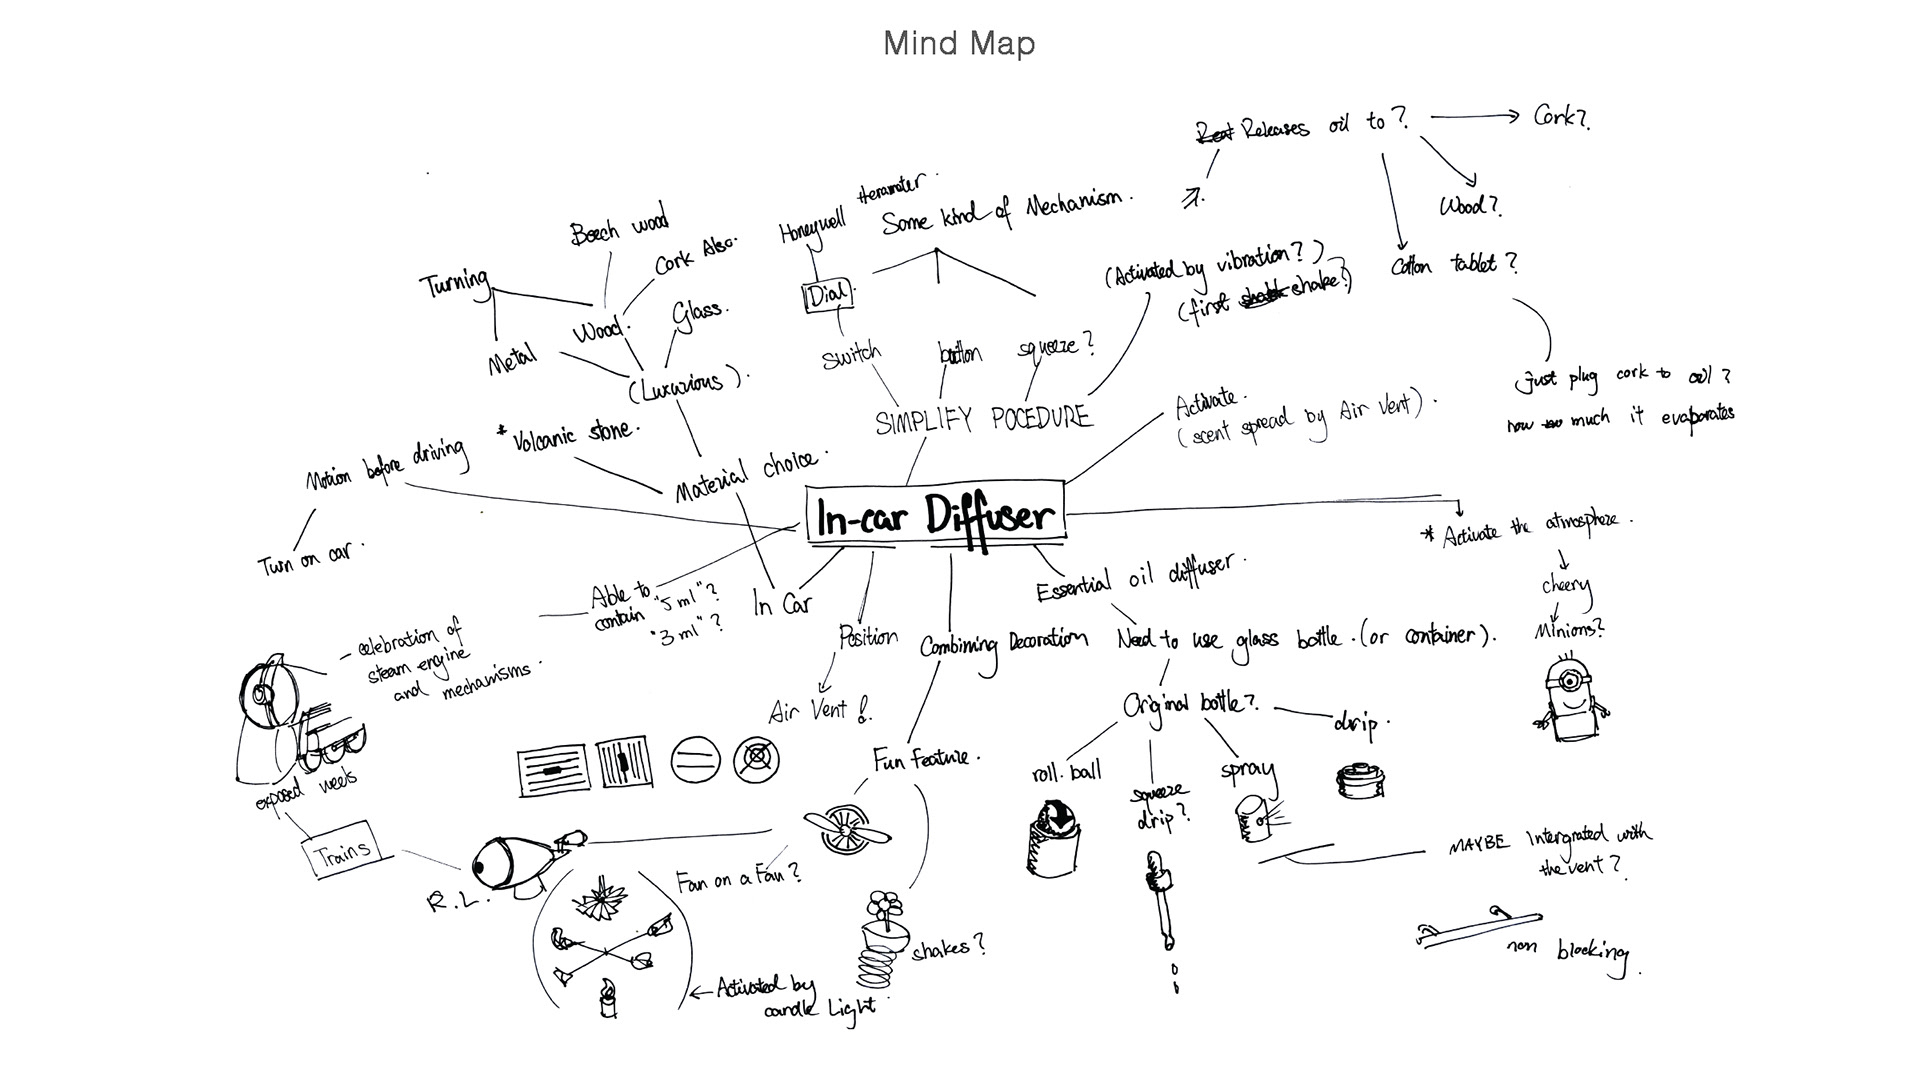 Mind Map
Releases oil to?
Cork?
Wood?
Cotton tablet?
just plug cork to oil?
how much it evaporates
Honeywell
Some kind of Mechanism.
Dial
switch
button
squeeze?
(Activated by vibration?)
(first shake?)
SIMPLIFY POCEDURE
Beech wood
Cork Also.
Turning
Wood.
Glass.
Metal
(Luxurious).
* Volcanic stone.
Material choice.
Motion before driving
Turn on car.
Activate.
(scent spread by Air Vent).
In-car Diffuser
* Activate the atmosphere.
cheery
Minions?
Able to
contain "5 ml"?
"3 ml"?
In Car
Position
Air Vent!
Combining Decoration
Fun feature.
Essential oil diffuser.
Need to use glass bottle.(or container).
Original bottle?
roll.ball
squeeze
drip?
spray
drip.
MAYBE Intergrated with
the vent?
non blocking.
- celebration of
steam engine
and mechanisms.
exposed weels
Trains
R.L.
Fan on a Fan?
shakes?
Activated by
candle Light